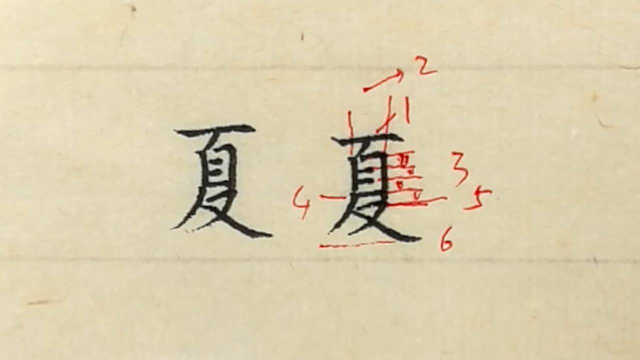 夏 夏
2
3
4 5
6